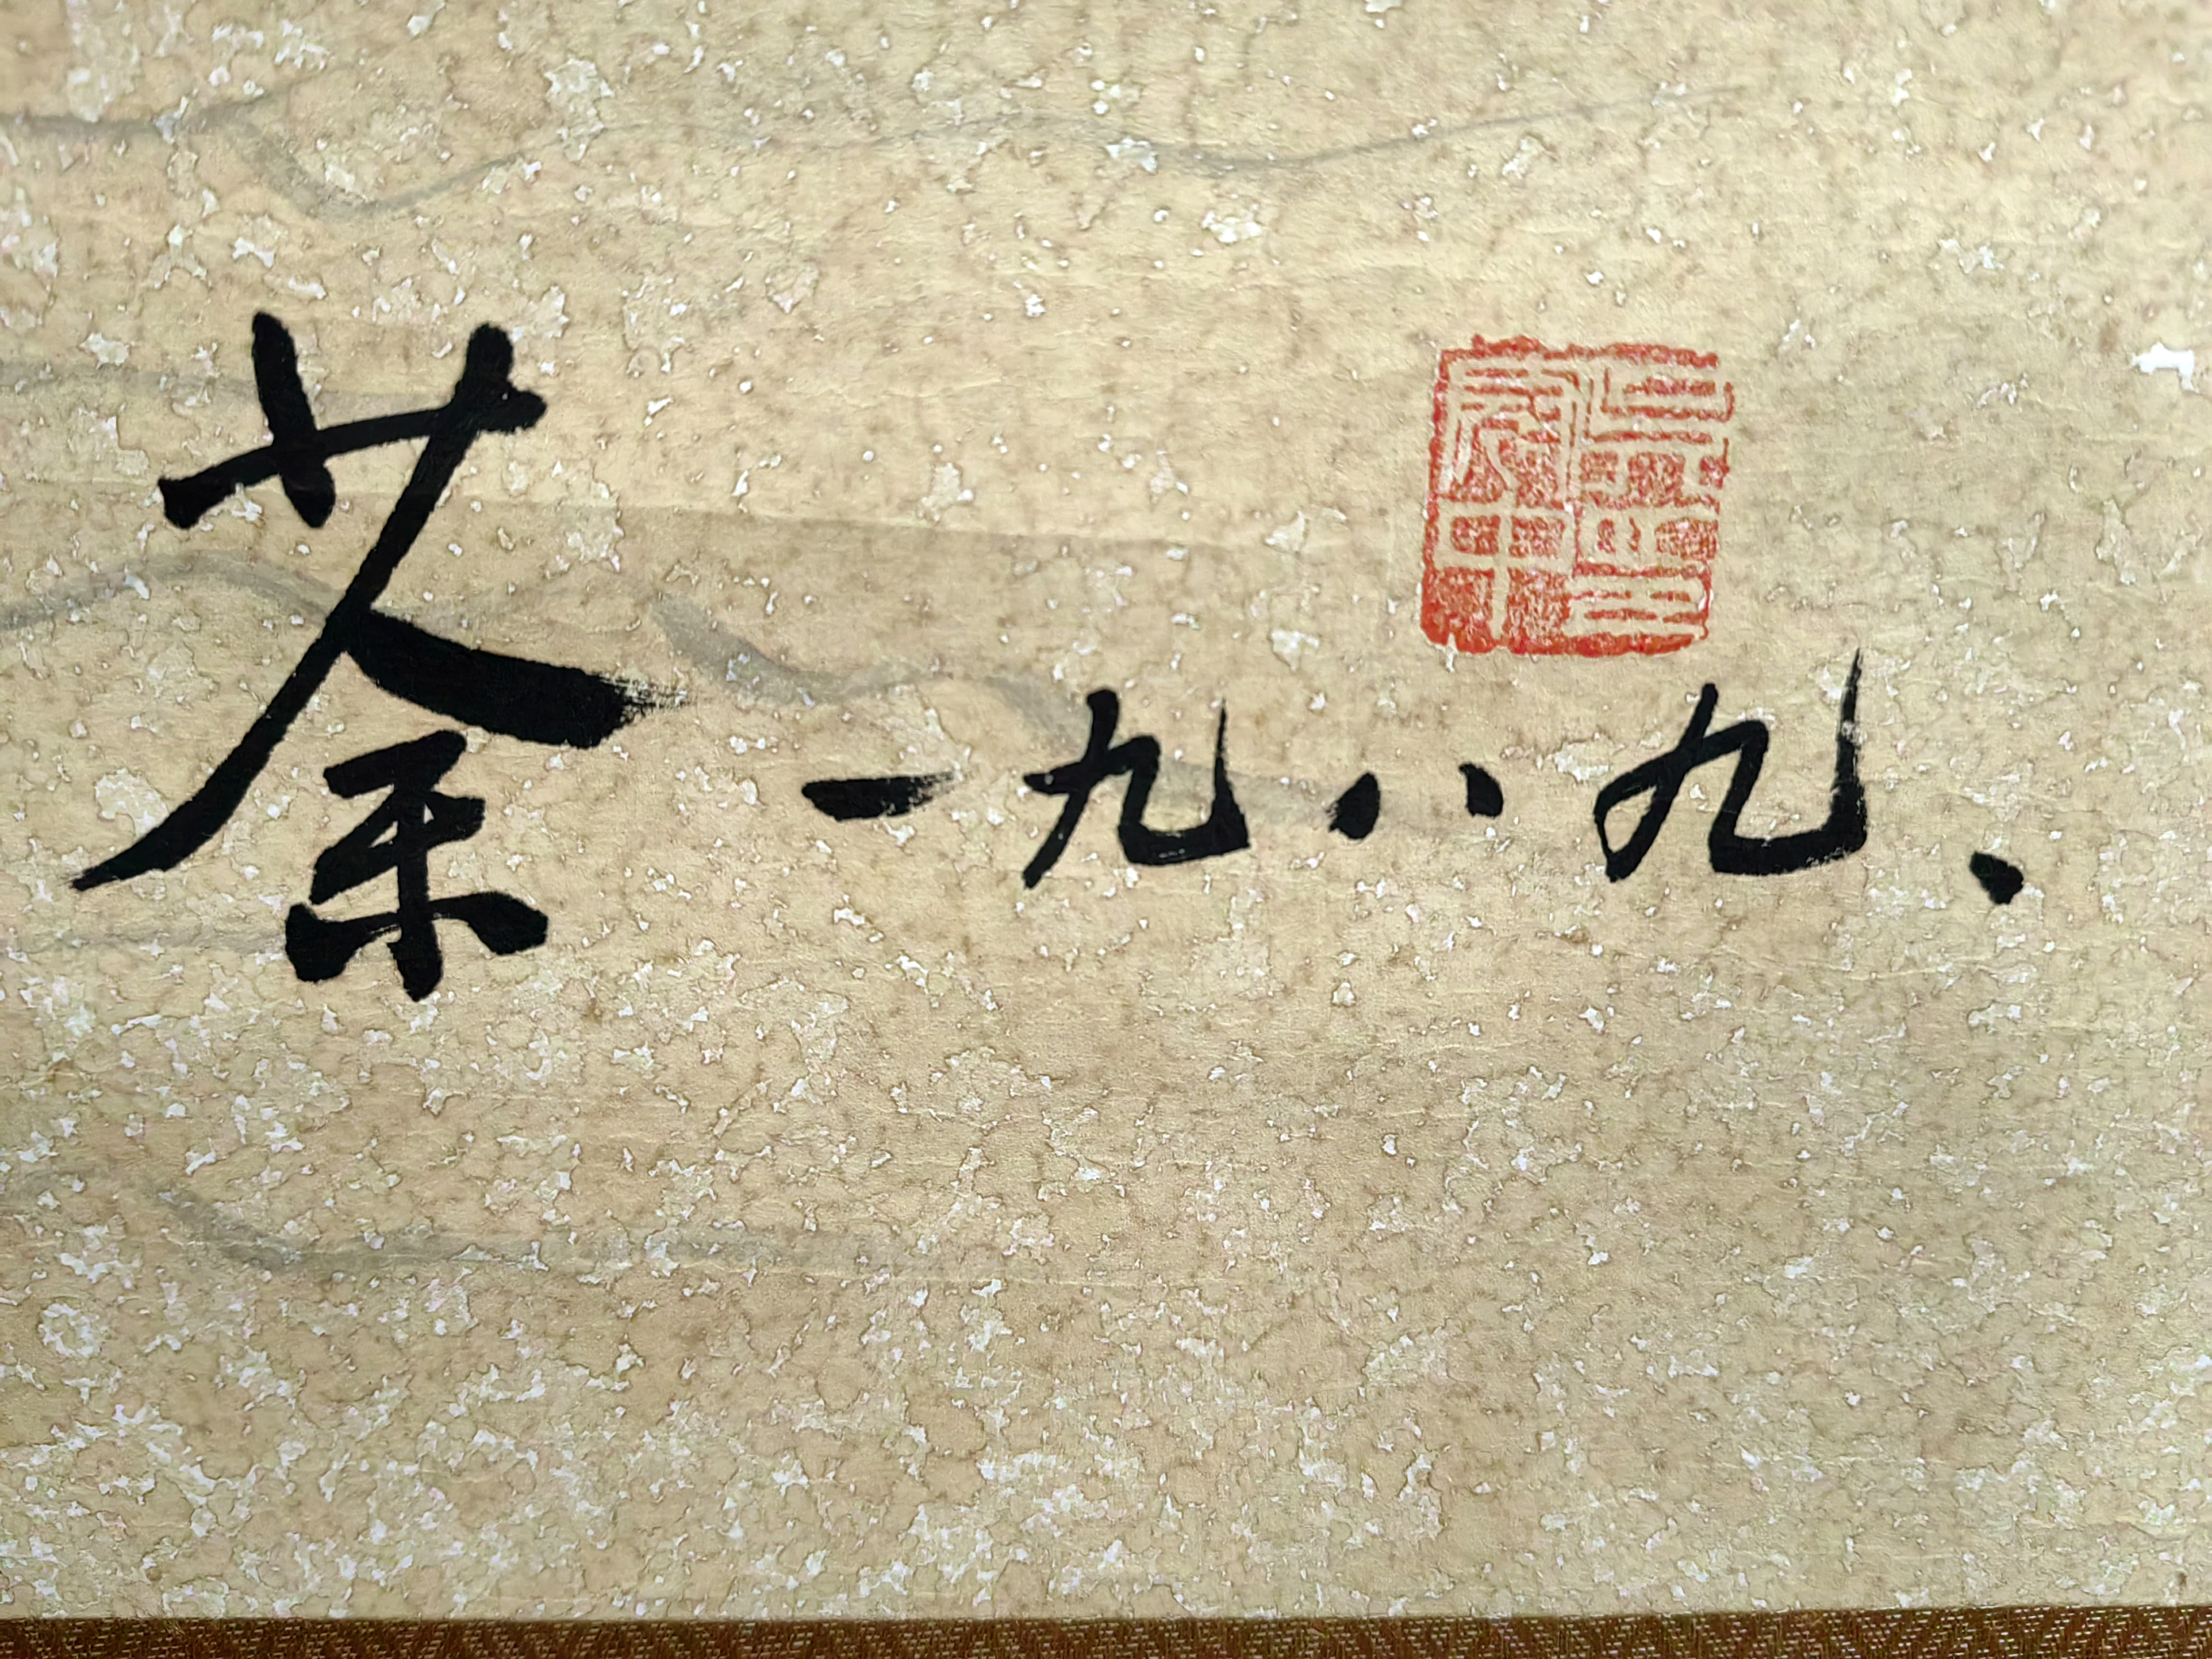 荼 一九八九、